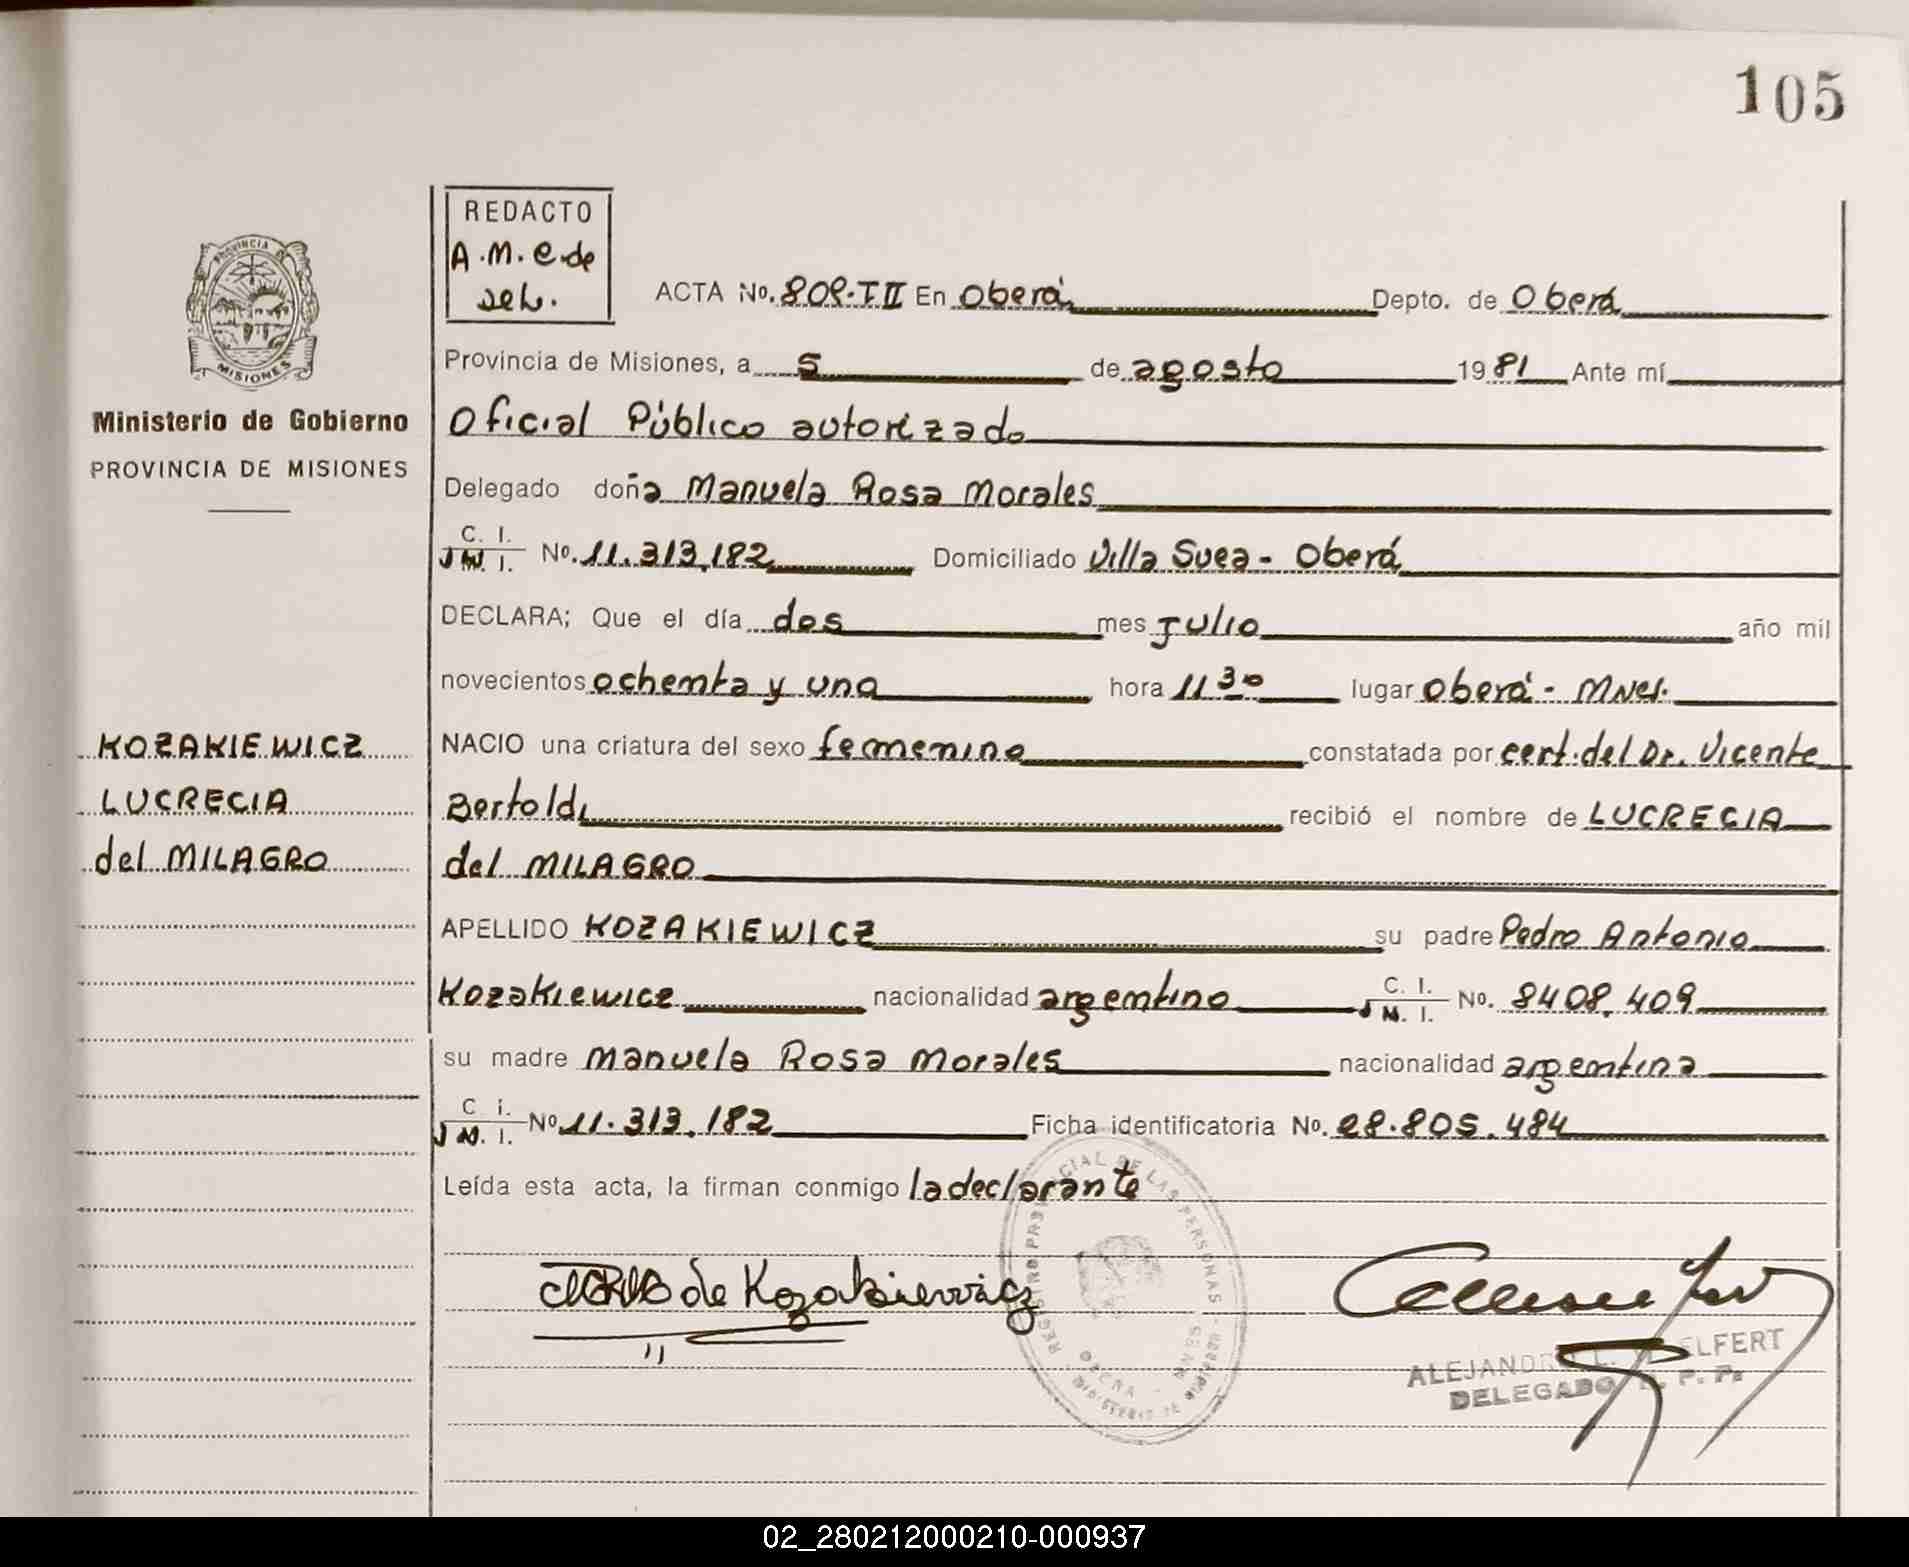 105
REDACTO
A.M.C. de
PROVINCIA DE
MISIONES
ACTA No. 808-T II En Oberá Depto. de Oberá
Provincia de Misiones, a 5 de agosto 1981 Ante mí
Ministerio de Gobierno
PROVINCIA DE MISIONES
Oficial Público autorizado
Delegado doña Manuela Rosa Morales
C. I.
M. I. No. 11.313.182 Domiciliado Villa Svea - Oberá
DECLARA; Que el día dos mes julio año mil
novecientos ochenta y uno hora 11 30 lugar Oberá - Mnes.
KOZAKIEWICZ
LUCRECIA
del MILAGRO
NACIO una criatura del sexo femenino constatada por cert. del Dr. Vicente
Bertoldi recibió el nombre de LUCRECIA
del MILAGRO
APELLIDO KOZAKIEWICZ su padre Pedro Antonio
Kozakiewicz nacionalidad argentino C. I. M. I. No. 8408.409
su madre Manuela Rosa Morales nacionalidad argentina
C. I.
M. I. No. 11.313.182 Ficha identificatoria No. 28.805.484
Leída esta acta, la firman conmigo la declarante
de Kozakiewicz
REGISTRO PROVINCIAL DE LAS PERSONAS
OBERA - MNES
DELEGADO
02_280212000210-000937